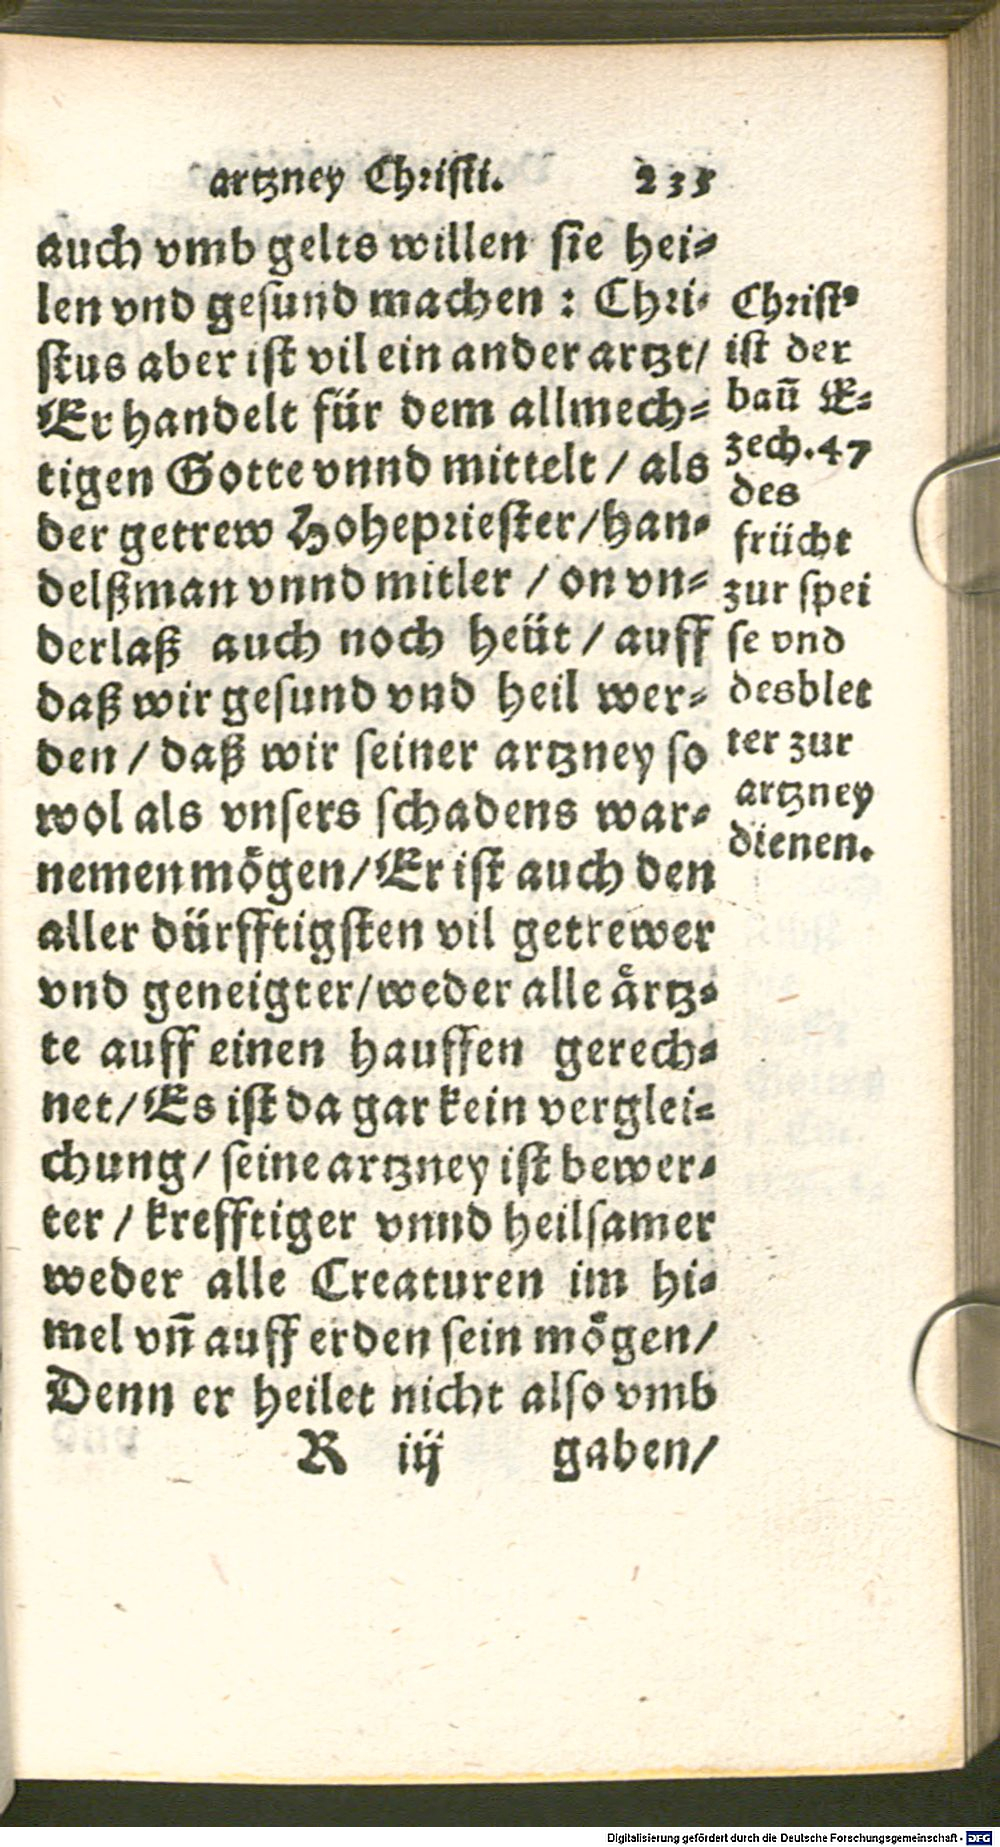 artzney Christi. 235
auch vmb gelts willen sie hei⸗
len vnd gesund machen : Chri⸗
stus aber ist vil ein ander artzt/
Er handelt für dem allmech⸗
tigen Gotte vnnd mittelt / als
der getrew Hohepriester/han⸗
delßman vnnd mitler / on vn⸗
derlaß auch noch heüt / auff
daß wir gesund vnd heil wer⸗
den / daß wir seiner artzney so
wol als vnsers schadens war⸗
nemen mögen/Er ist auch den
aller dürfftigsten vil getrewer
vnd geneigter/weder alle ärtz⸗
te auff einen hauffen gerech⸗
net/Es ist da gar kein verglei⸗
chung/ seine artzney ist bewer⸗
ter / krefftiger vnnd heilsamer
weder alle Creaturen im hi⸗
mel vn̄ auff erden sein mögen/
Denn er heilet nicht also vmb
R iij gaben/
Christꝰ
ist der
bau̅ E⸗
zech.47
des
frücht
zur spei
se vnd
desblet
ter zur
artzney
dienen.
Digitalisierung gefördert durch die Deutsche Forschungsgemeinschaft - DFG